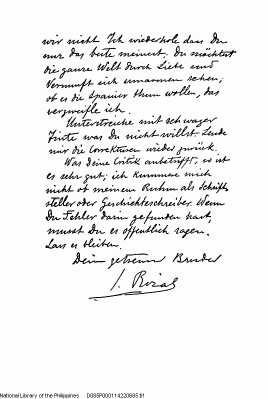 wir nicht. Ich wiederhole dass Du
nur das beste meinest. Du möchtest
die ganze Welt durch Liebe und
Vernunft sich umarmen sehen;
ob es die Spanier thun wollen, das
verzweifle ich.
Unterstreiche mit schwarzer
Tinte was Du nicht willst. Sende
mir die Correkturen wieder zurück.
Was Deine Critik anbetrifft, so ist
es sehr gut; ich kümmere mich
nicht ob meinem Ruhm als Schrift-
steller oder Geschichtschreiber. Wenn
Du Fehler darin gefunden hast,
musst Du es öffentlich sagen.
Lass es bleiben.
Dein getreuer Bruder
J. Rizal
National Library of the Philippines